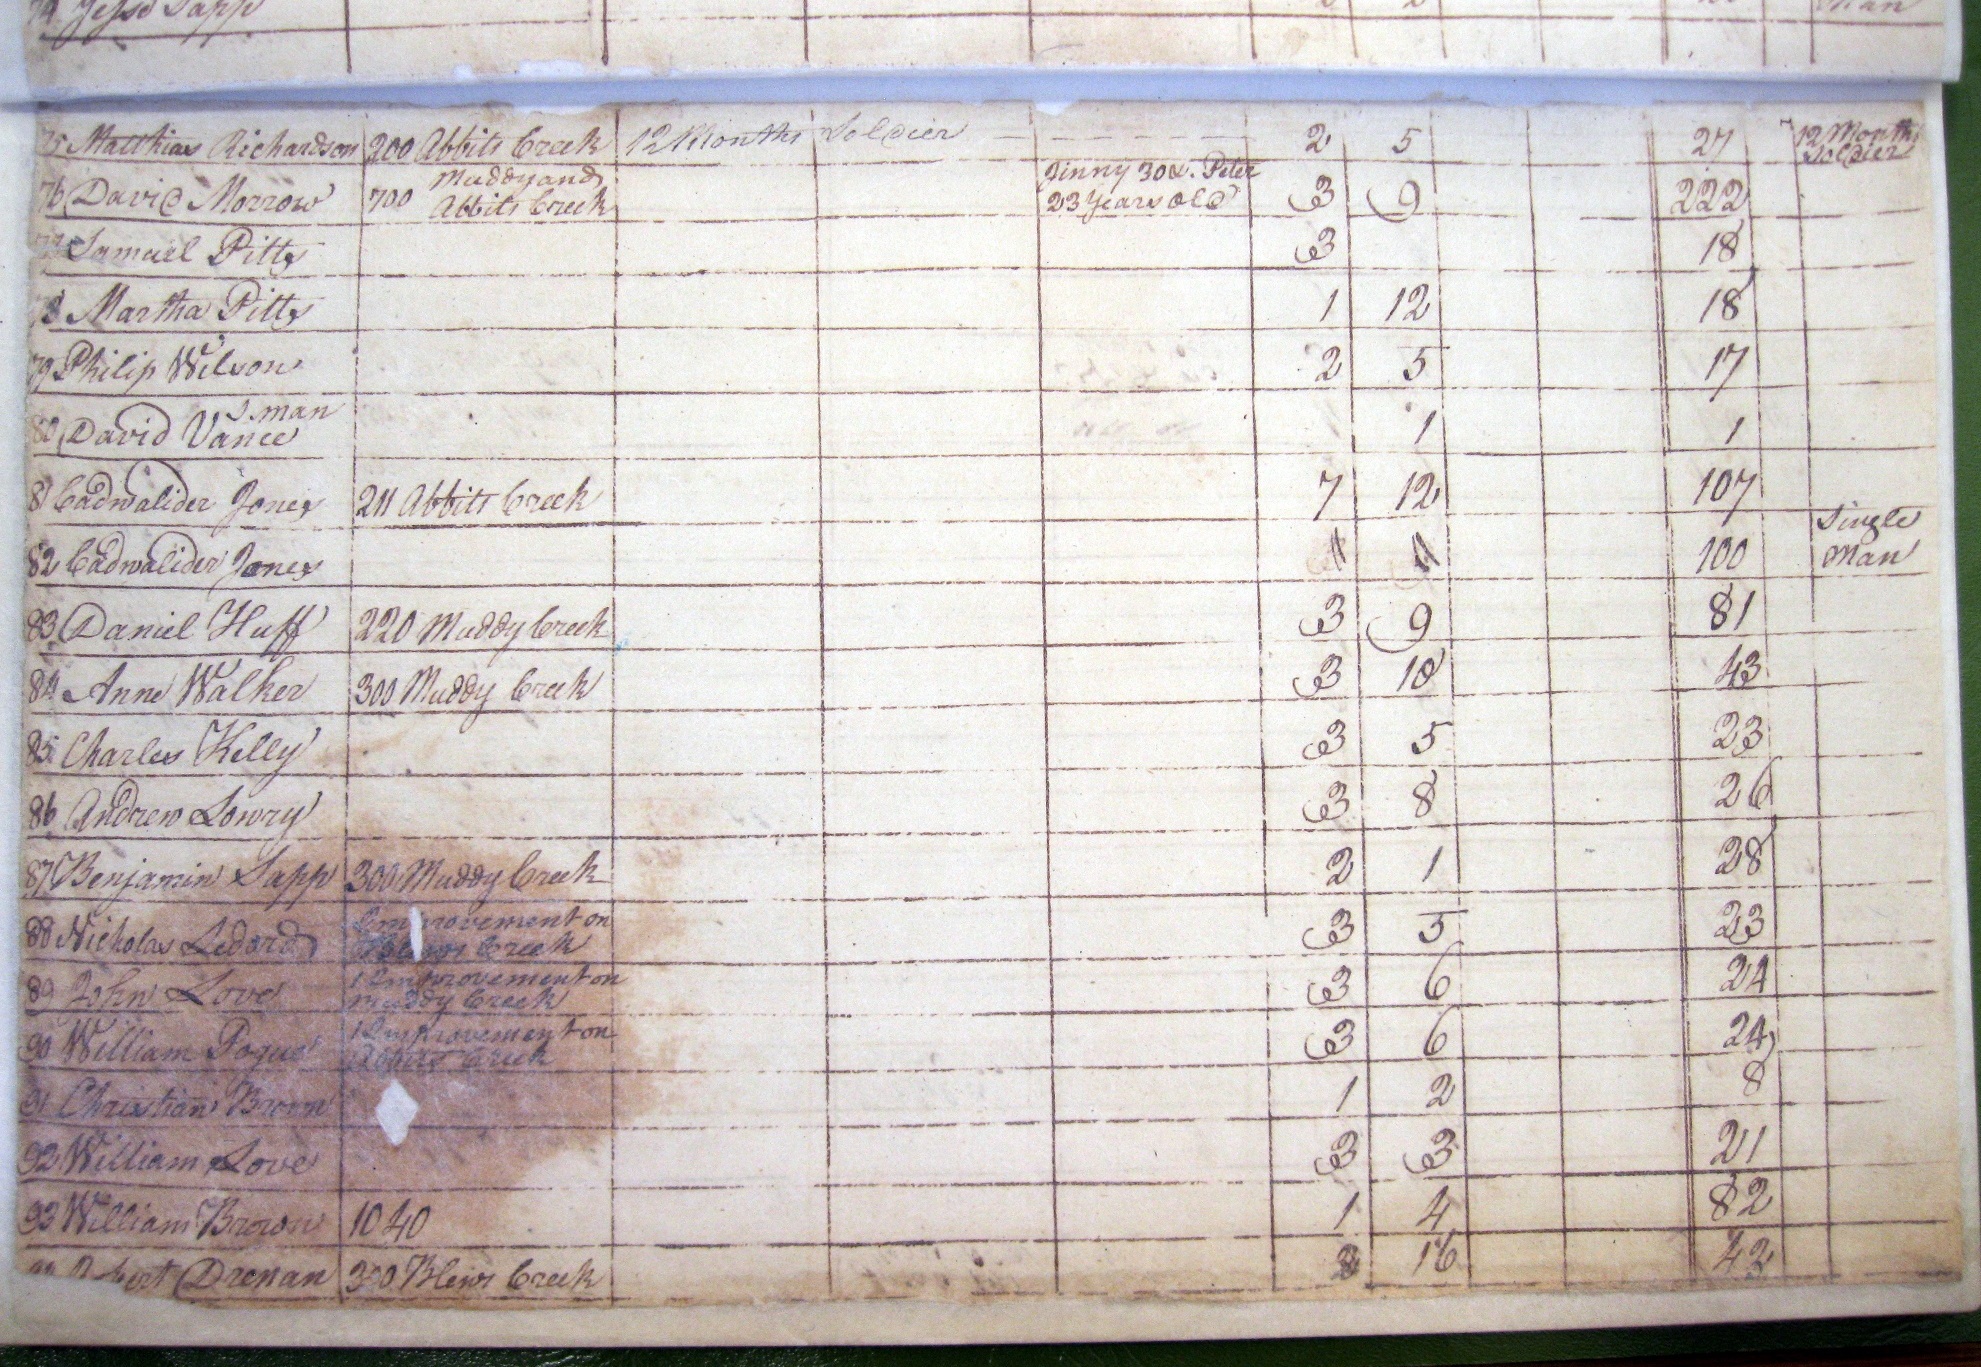 Jesse Sapp man
75 Matthias Richardson 200 Abbits Creek 12 Months Soldier 2 5 27 12 Months Soldier
76 David Morrow 700 Muddy and Abbits Creek Jinny 30 &. Peter 23 Years old 3 9 222
Samuel Pitts 3 18
78 Martha Pitts 1 12 18
79 Philip Wilson 2 5 17
80 David Vance S. man 1 1
81 Cadwalider Jones 211 Abbits Creek 7 12 107
82 Cadwalider Jones 11 11 100 Single Man
83 Daniel Huff 220 Muddy Creek 3 9 81
84 Anne Walker 300 Muddy Creek 3 10 43
85 Charles Kelly 3 5 23
86 Andrew Lowry 3 8 26
87 Benjamin Sapp 300 Muddy Creek 2 1 28
88 Nicholas Ledard Improvement on Creek 3 5 23
89 John Love 1 Improvement on muddy Creek 3 6 24
90 William Pogue 1 Improvement on Abbits Creek 3 6 24
91 Christian Brown 1 2 8
92 William Love 3 3 21
93 William Brown 1040 1 4 82
Drenan 300 Blews Creek 16 42